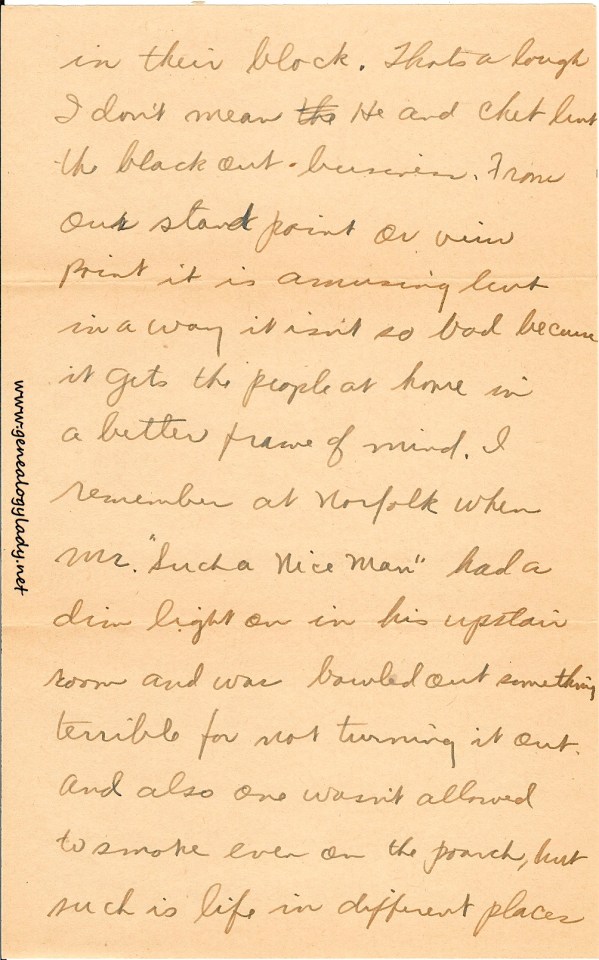 in their block. Thats a laugh
I don't mean the He and Chet but
the black out - business. From
our stand point or view
point it is amusing but
in a way it isn't so bad because
it gets the people at home in
a better frame of mind. I
remember at Norfolk when
Mr. "Such a Nice Man" had a
dim light on in his upstair
room and was bawled out something
terrible for not turning it out.
And also one wasn't allowed
to smoke even on the poarch, but
such is life in different places
www.genealogylady.net